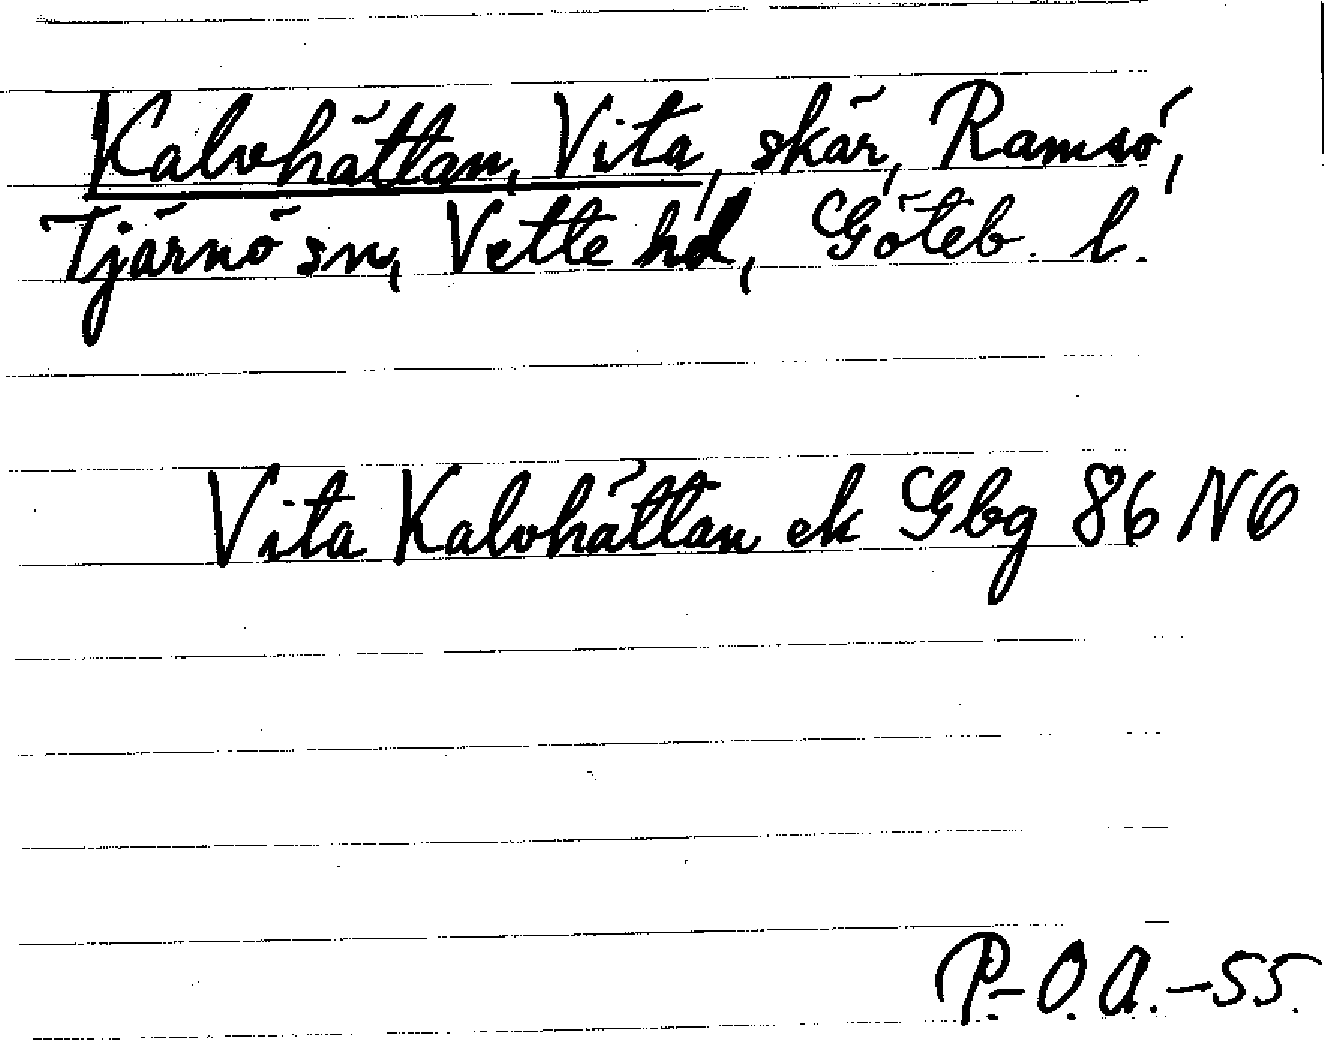 Kalvhättan, Vita, skär, Ramsö,
Tjärnö sn, Vette hd, Göteb. l.
Vita Kalvhättan ek Gbg 86 NO
P.-O.A.-55.